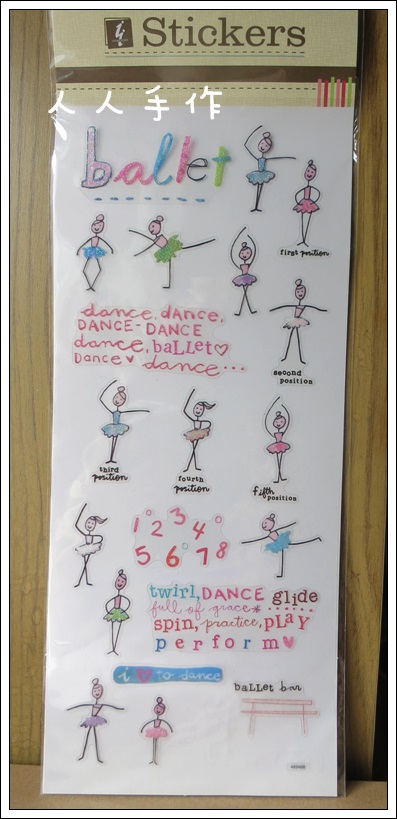 Stickers
人人手作
ballet
first position
dance, dance,
DANCE-DANCE
dance, baLLet♡
Dance♥ dance...
second
position
third
position
fourth
position
fifth
position
1 2 3 4
5 6 7 8
twirl, DANCE glide
full of grace*
spin, practice, pLAY
perform♥
i ♥ to dance
baLLet bar